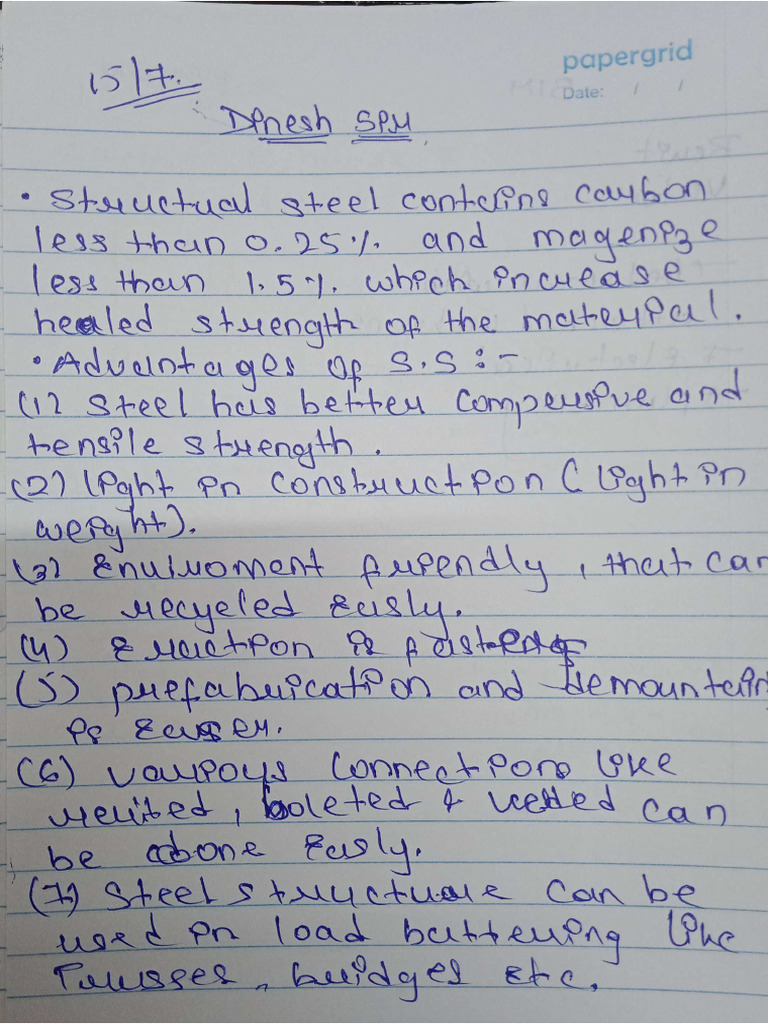 papergrid
Date: / /
15/7.
Dinesh SIM
• Structual steel contains carbon
less than 0.25% and magenize
less than 1.5% which increase
healed strength of the material.
• Advantages of S.S :-
(1) Steel has better compersive and
tensile strength.
(2) light in construction ( light in
weight).
(3) Enviroment friendly, that can
be recycled easly.
(4) Eraction is faster
(5) prefabrication and demountain
is easer.
(6) various connections like
revited, boleted & welded can
be done easly.
(7) Steel structure can be
used in load battering like
Trusses, bridges etc.